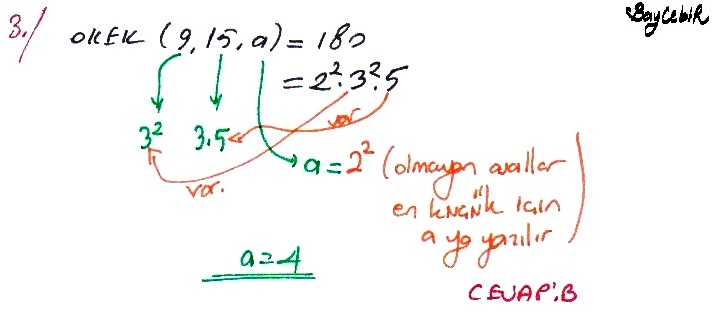 BayCebiR
3./ OKEK (9, 15, a) = 180
= 2².3².5
3² 3.5
var
var.
a = 2² (olmayan asallar
en küçük için
a ya yazılır)
a = 4
CEVAP:B